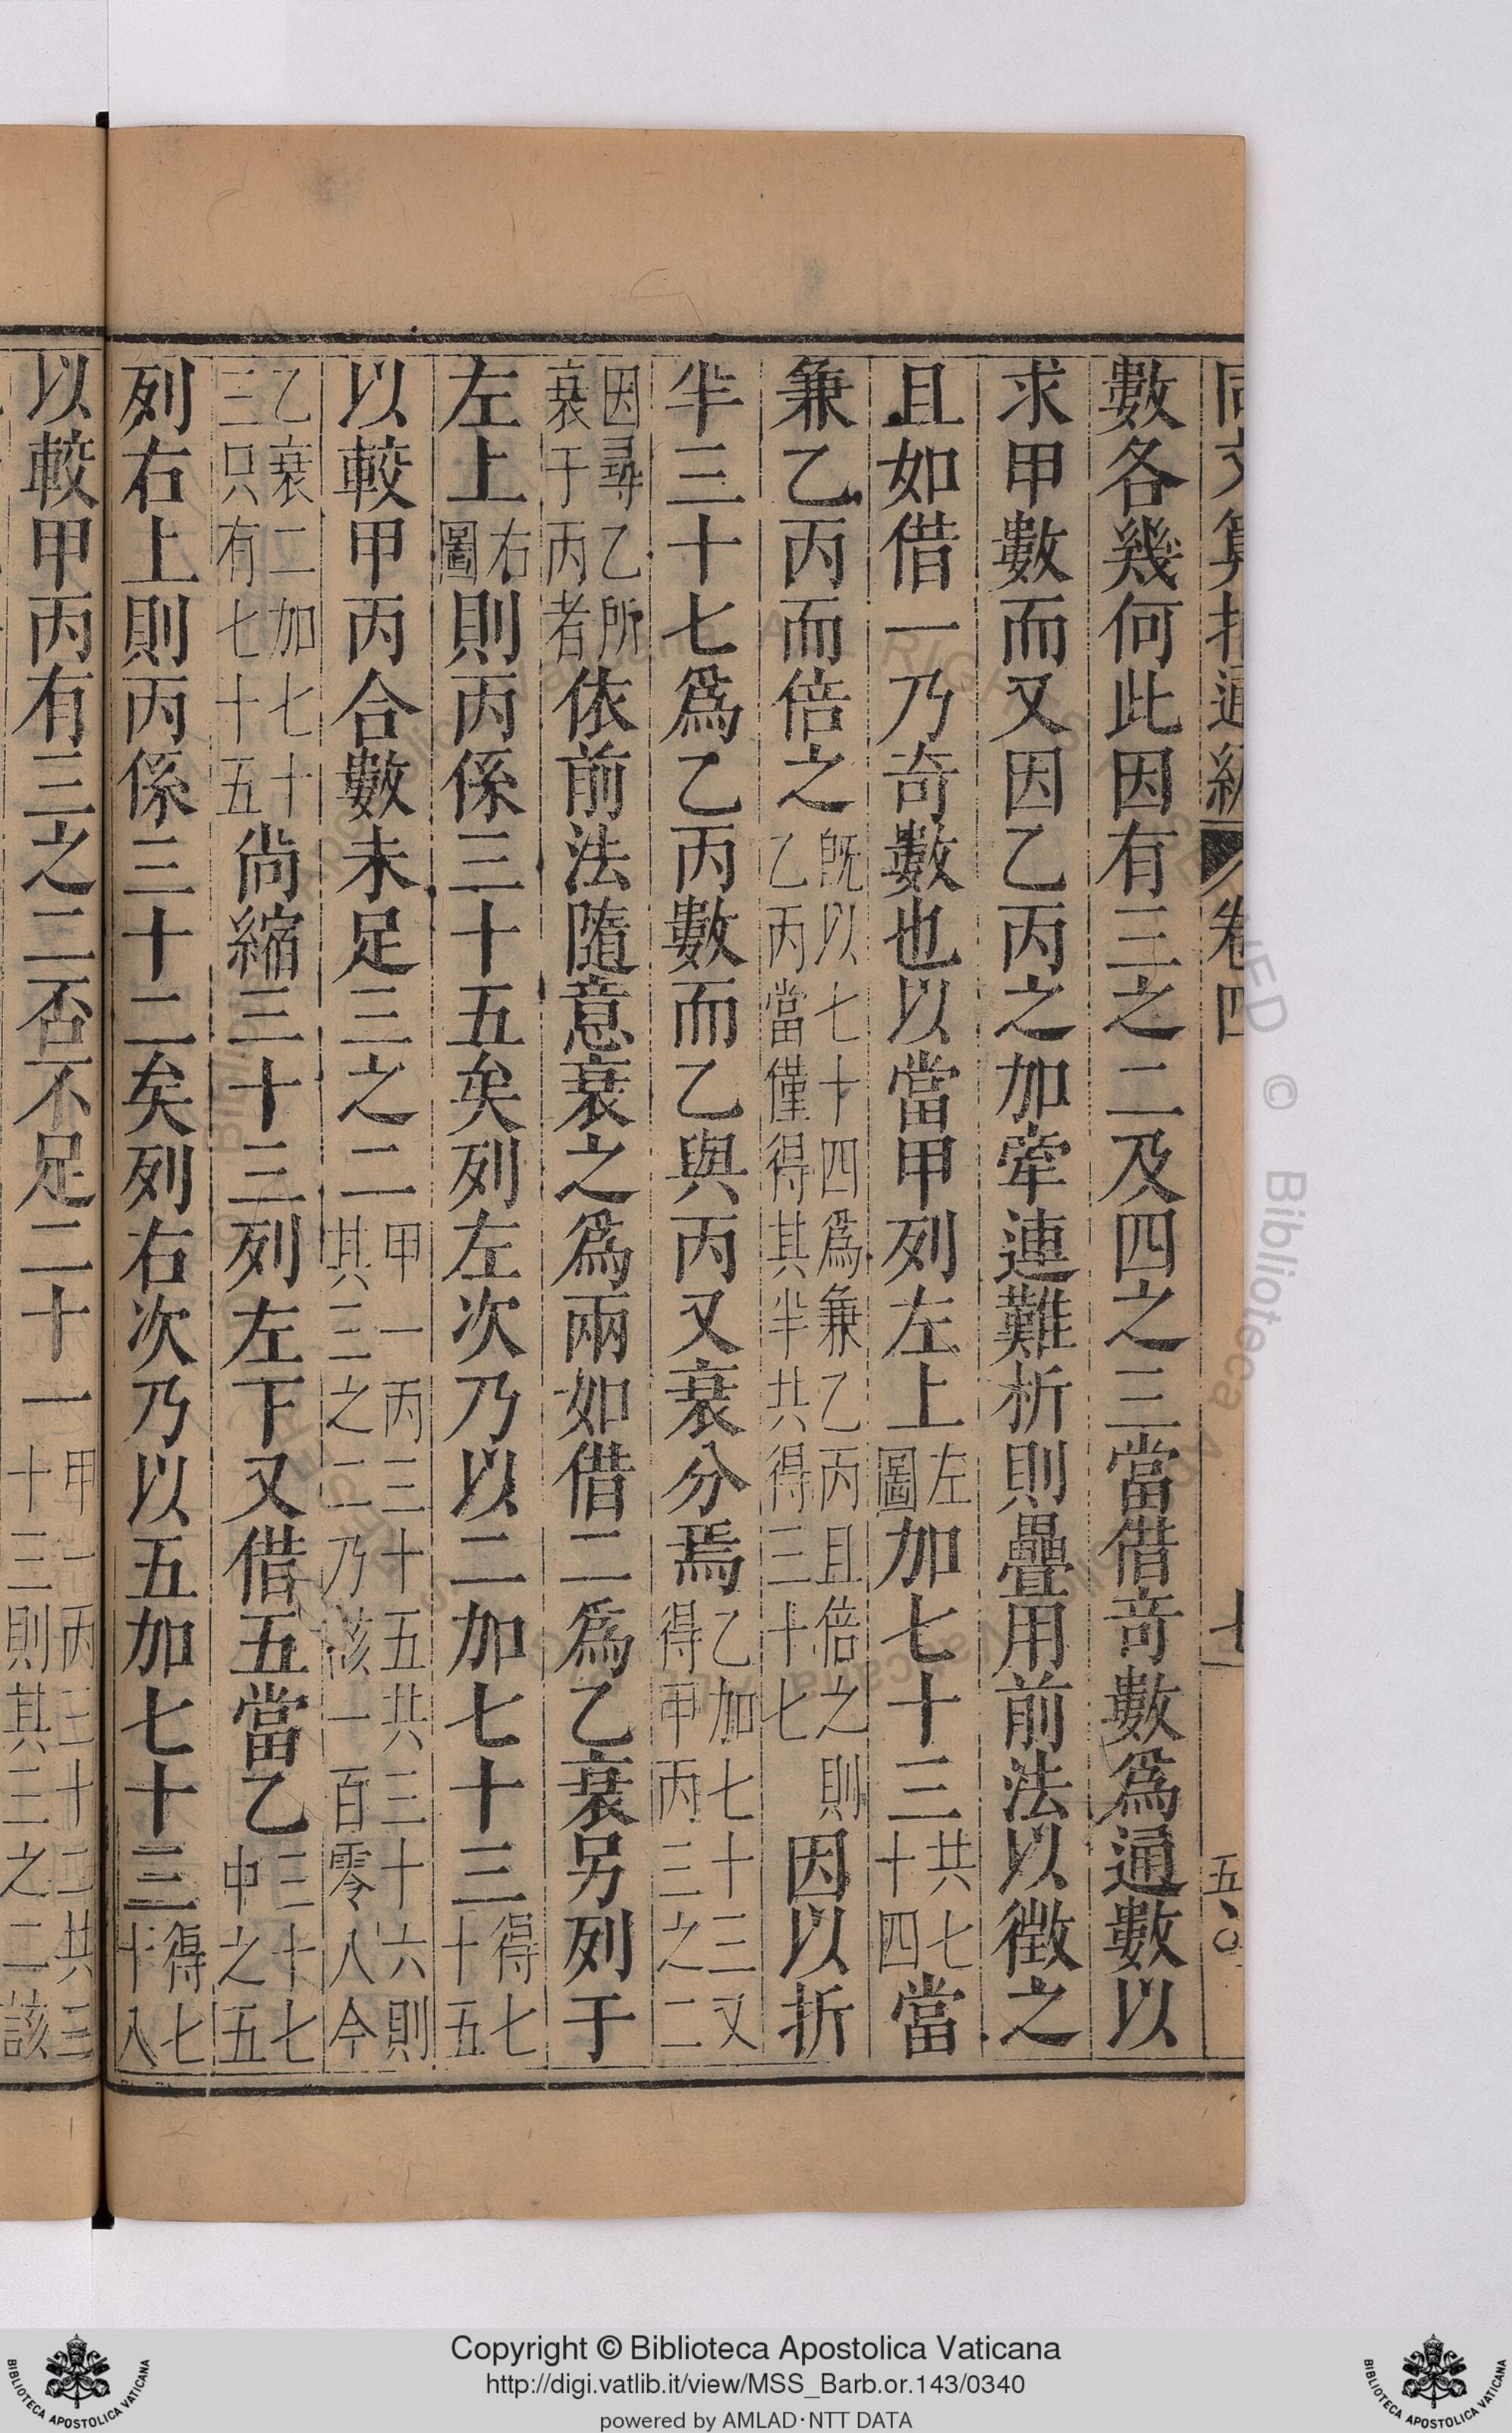 同文算指通編 卷四 七 五〇
數各幾何此因有三之二及四之三當借竒數爲通數以
求甲數而又因乙丙之加牽連難析則疊用前法以徵之
且如借一乃奇數也以當甲列左上左圖加七十三共七十四當
兼乙丙而倍之既以七十四爲兼乙丙且倍之則乙丙當僅得其半共得三十七因以折
半三十七爲乙丙數而乙與丙又衰分焉乙加七十三又得甲丙三之二
因尋乙所衰于丙者依前法隨意衰之爲兩如借二爲乙衰另列于
左上右圖則丙係三十五矣列左次乃以二加七十三得七十五
以較甲丙合數未足三之二甲一丙三十五共三十六則其三之二乃該一百零八今
乙衰二加七十三只有七十五尙縮三十三列左下又借五當乙三十七中之五
列右上則丙係三十二矣列右次乃以五加七十三得七十八
以較甲丙有三之二否不足二十一甲一丙三十二共三十三則其三之二該
Copyright © Biblioteca Apostolica Vaticana
http://digi.vatlib.it/view/MSS_Barb.or.143/0340
powered by AMLAD·NTT DATA
BIBLIOTECA APOSTOLICA VATICANA
BIBLIOTECA APOSTOLICA VATICANA